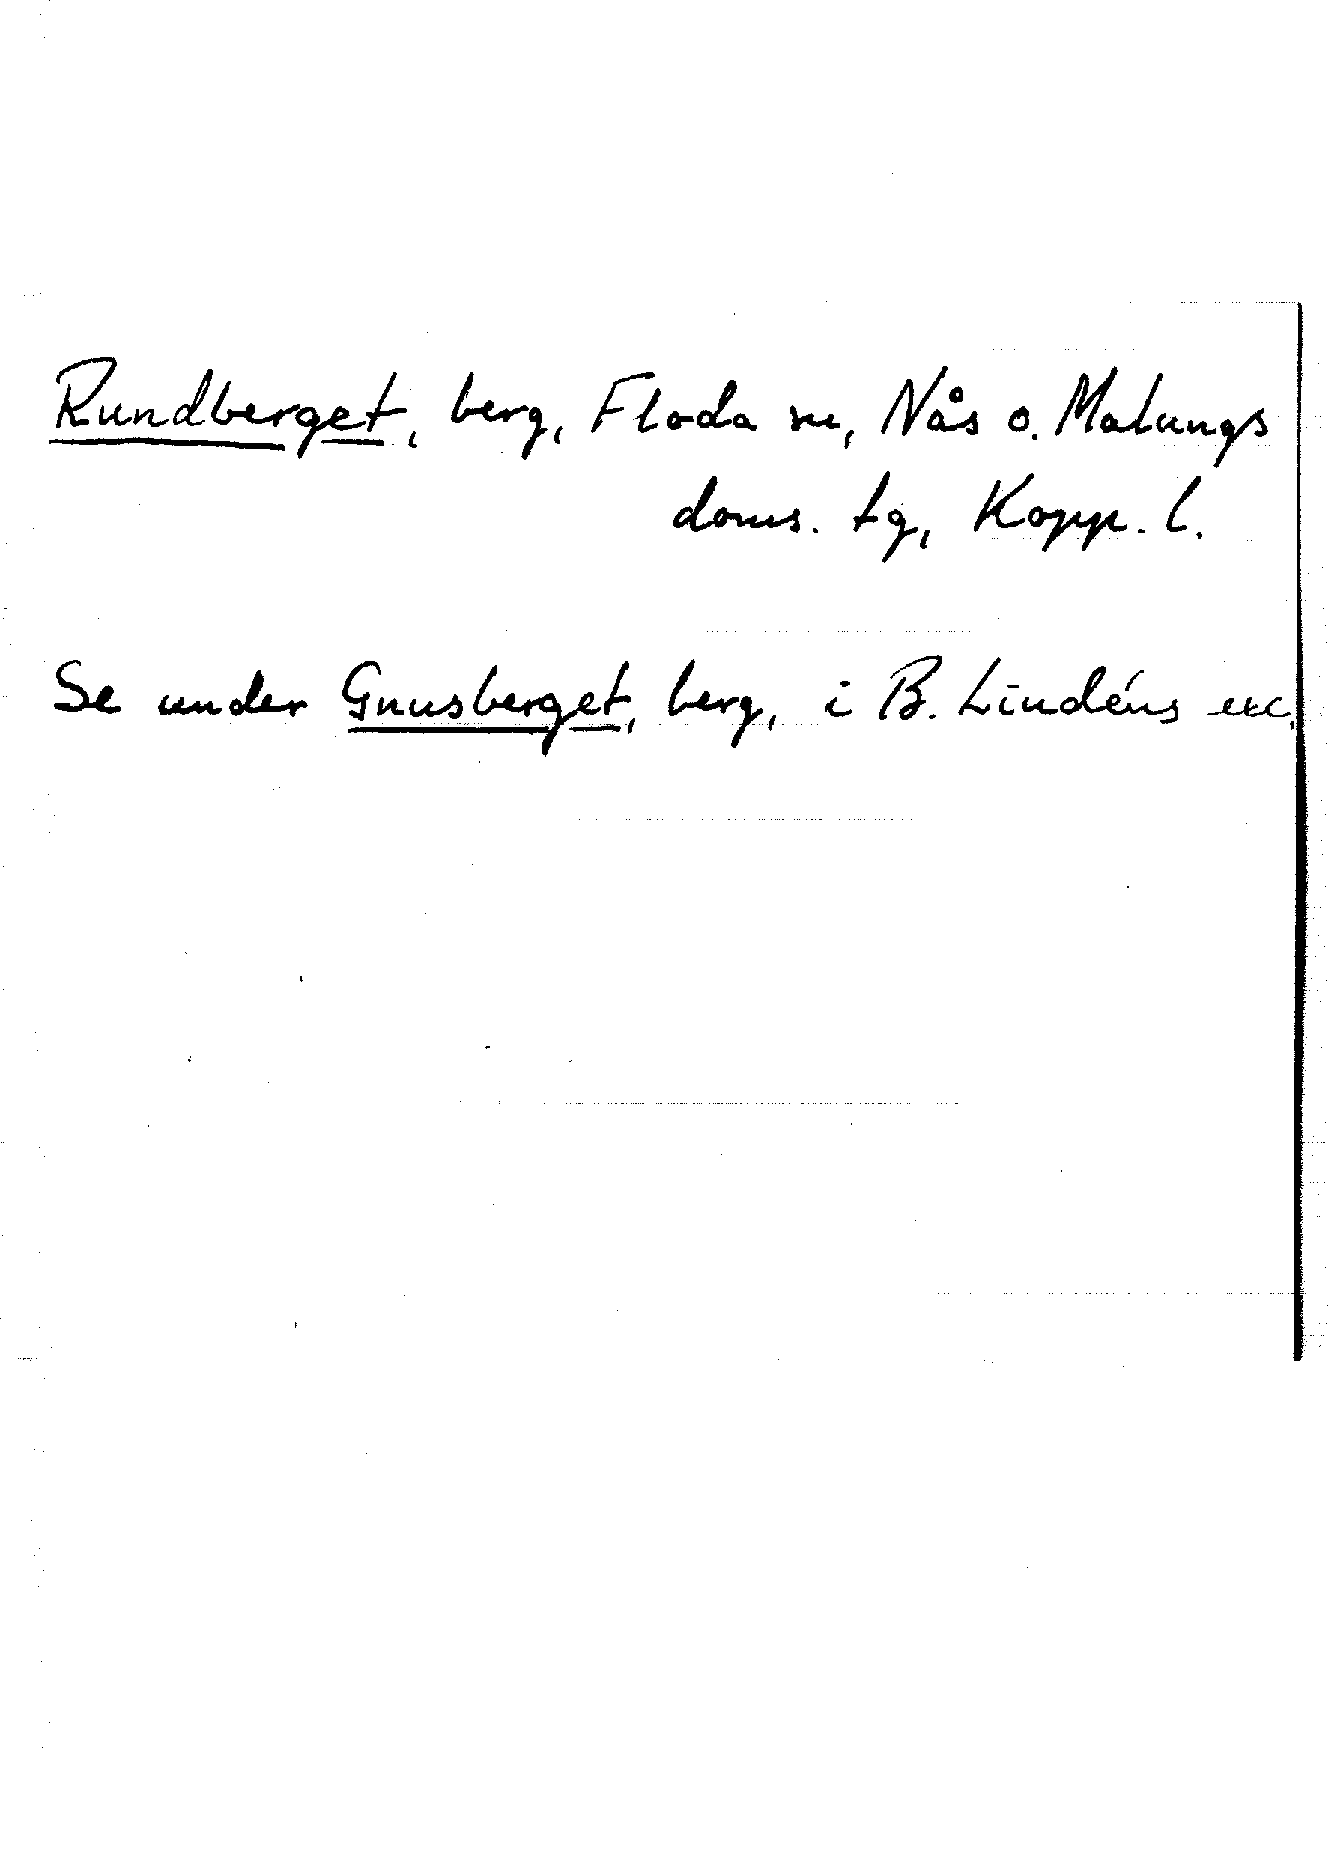 Rundberget, berg, Floda sn, Nås o. Malungs
doms. tg, Kopp. l.
Se under Gnusberget, berg, i B. Lindéns exc.